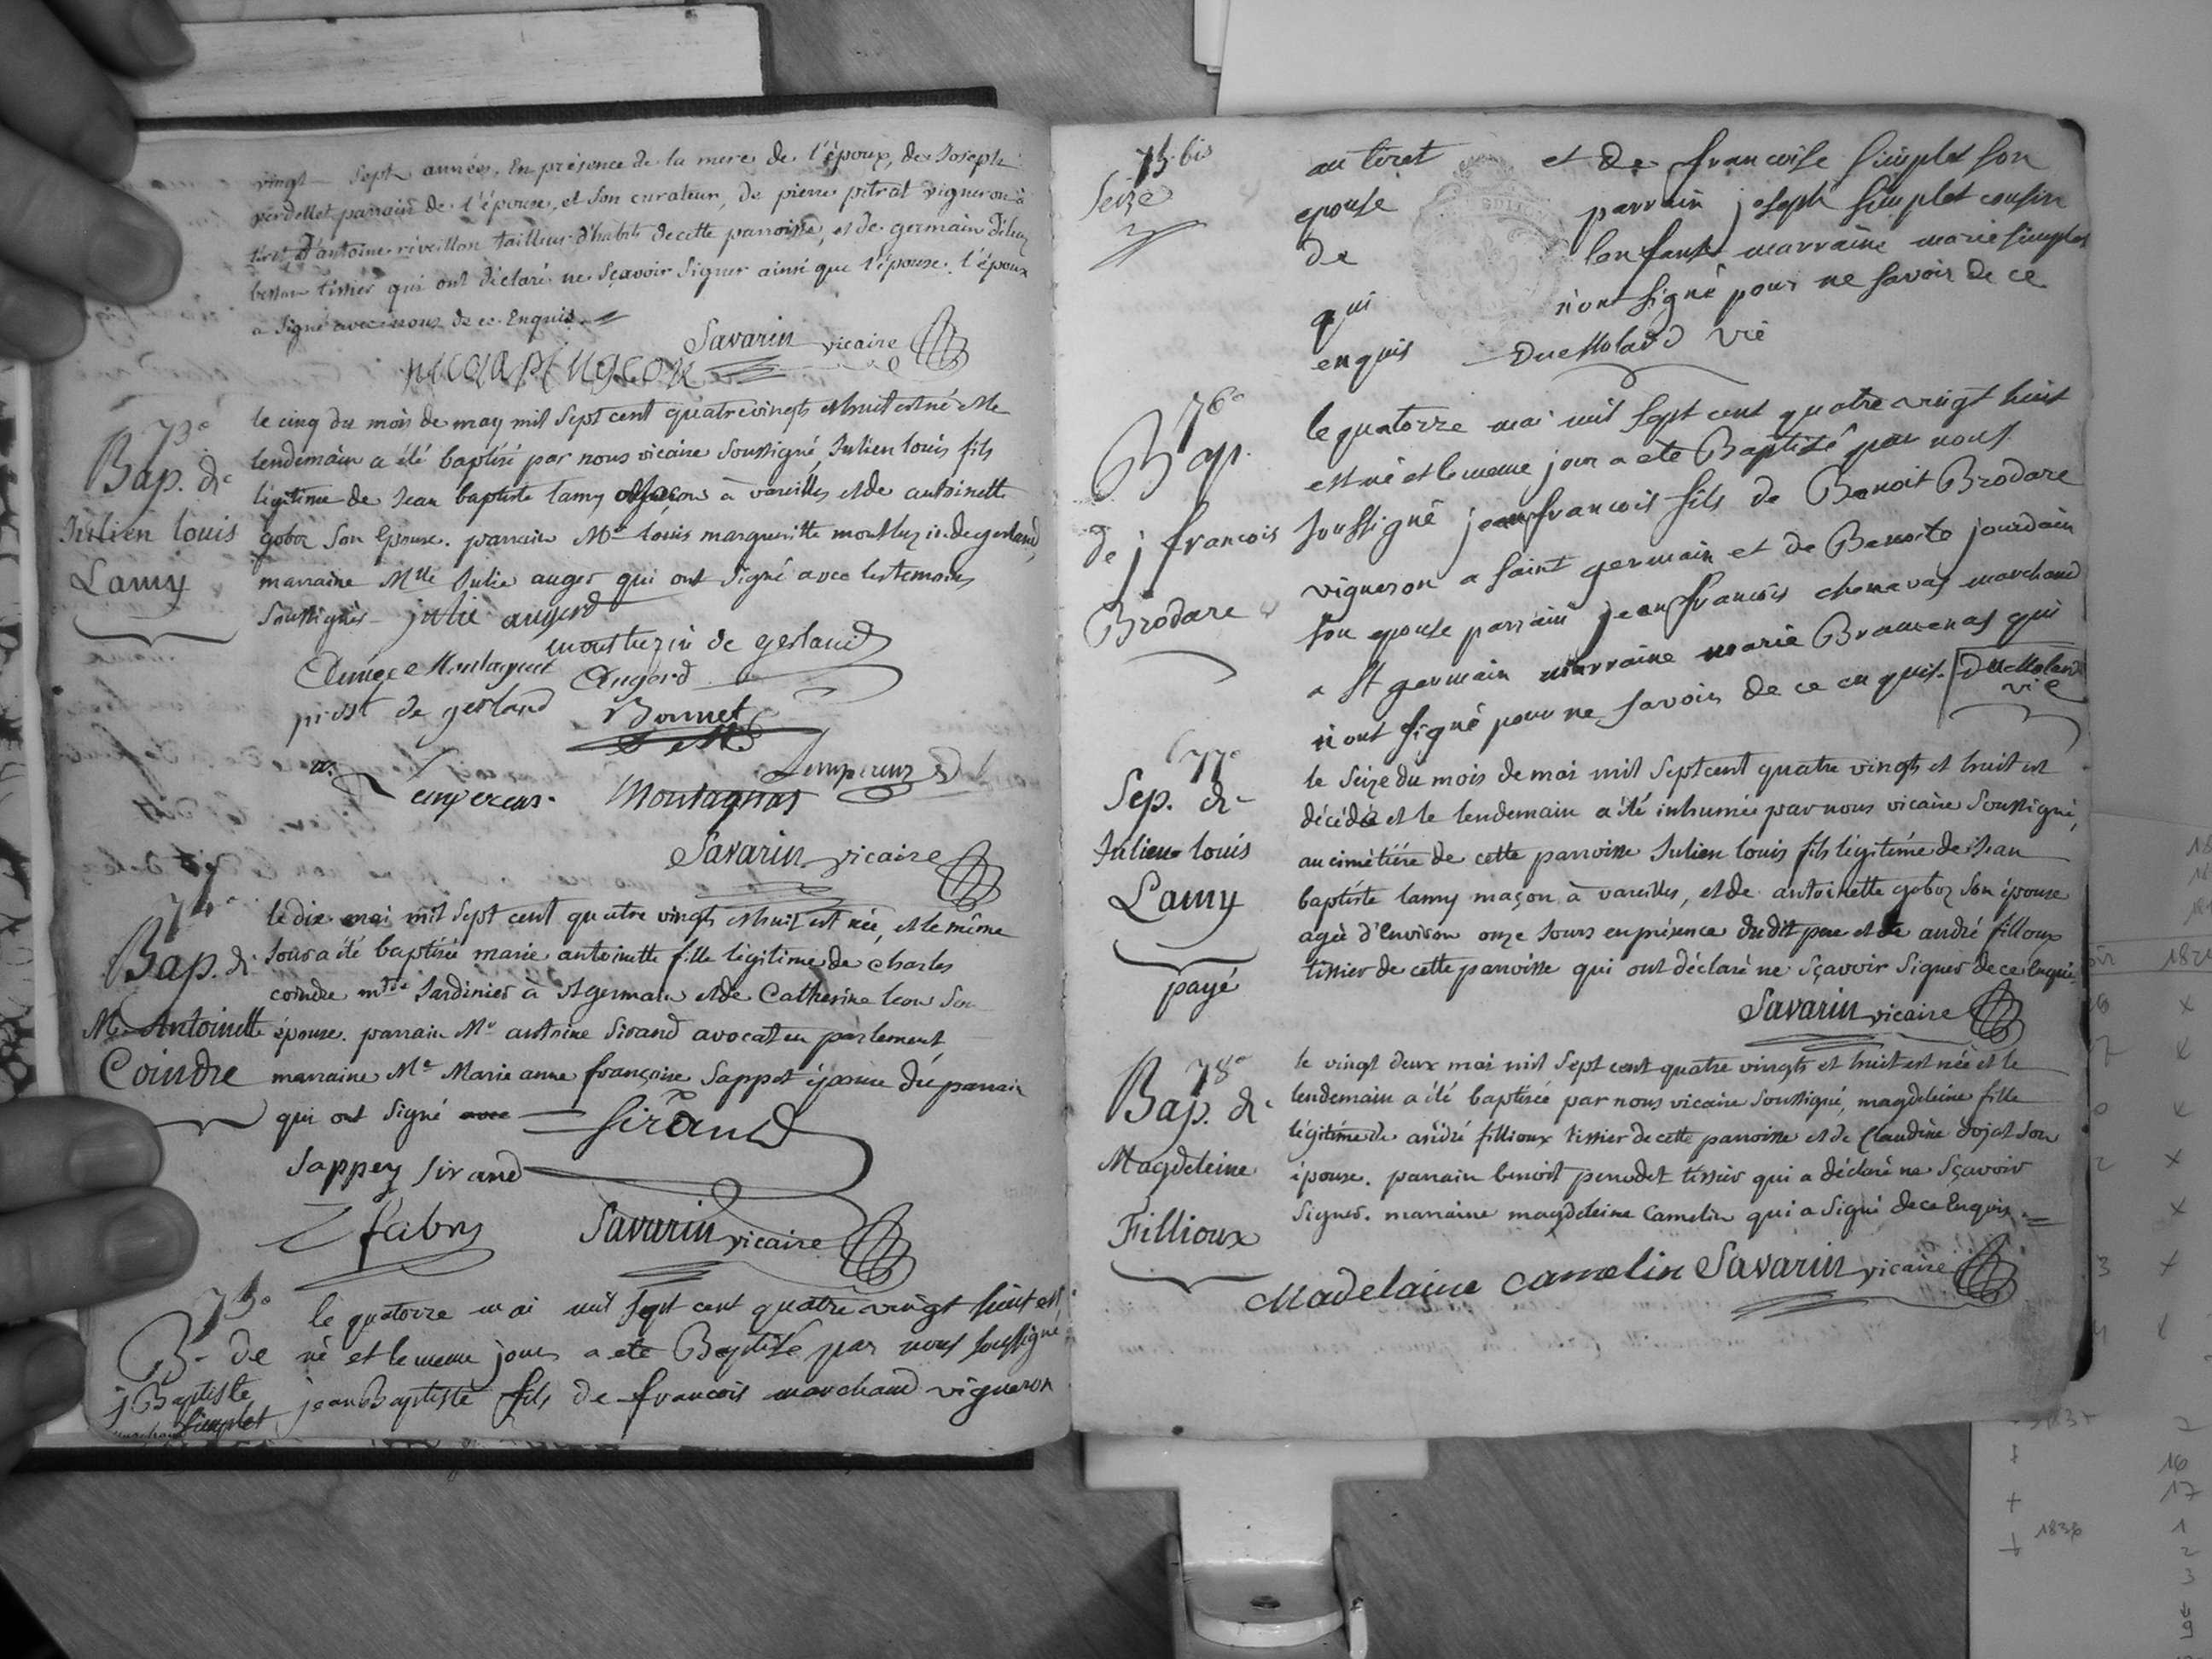 vingt sept années. En présence de la mere de l'époux, de Joseph
verdellet parrain de l'épouse, et son curateur, de pierre pitrat vigneron à
tiret d'antoine réveillon tailleur d'habits de cette parroisse, et de germain
tissier qui ont déclaré ne sçavoir signer ainsi que l'épouse. l'époux
a signé avec nous de ce Enquis.
Savarin vicaire
73e
Bap. de
Julien louis
Lamy
le cinq du mois de may mil sept cent quatre vingts et huit est né et le
lendemain a été baptisé par nous vicaire soussigné, Julien louis fils
légitime de Jean baptiste lamy maçon à vareilles et de antoinette
goboz son Epouse. parrain Mre louis margueritte monthuzin de gerland,
marraine Mlle Julie auger qui ont signé avec les temoins
soussignés julie augerd
monthuzin de gerland
prost de gerland Augerd
Bonnet
Lempereur
Lempereur Montagnat
Savarin vicaire
74e
Bap. de
M. Antoinette
Coindre
le dix mai mil sept cent quatre vingts et huit est née, et le même
Jour a été baptisée marie antoinette fille légitime de charles
coindre mtre Jardinier à st germain et de Catherine leon son
épouse. parrain Mre antoine Sirand avocat en parlement,
marraine Me Marie anne françoise Sappet épouse du parrain
qui ont signé avec Sirand
Sappey Sirand
fabry Savarin vicaire
75e
B. de
j Baptiste
marchand Simplet
le quatorze mai mil sept cent quatre vingt huit est
né et le meme jour a ete Baptisé par nous soussigné
jean Baptiste fils de francois marchand vigneron
75 bis
Seize
au tiret et de francoise simplet son
epouse parrain joseph simplet cousin
de lenfant marraine marie simplet
qui n'ont signé pour ne savoir de ce
enquis Duemolard vic
76e
Bap.
de j francois
Brodare
le quatorze mai mil sept cent quatre vingt huit
est né et le meme jour a ete Baptisé par nous
soussigné jean francois fils de Benoit Brodare
vigneron a saint germain et de Benoite jourdain
son epouse parrain jean francois chenavas marchand
a st germain marraine marie Bramenas qui
n ont signé pour ne savoir de ce enquis. Duemolard
vic
77e
Sep. de
Julien louis
Lamy
payé
le seize du mois de mai mil sept cent quatre vingts et huit est
décédé et le lendemain a été inhumé par nous vicaire soussigné,
au cimétiére de cette parroisse Julien louis fils légitime de Jean
baptiste lamy maçon à vareilles, et de antoinette goboz son épouse
agé d'environ onze Jours en présence du dit pere et de andré filloux
tissier de cette parroisse qui ont déclaré ne sçavoir signer de ce Enquis
Savarin vicaire
78e
Bap. de
Magdeleine
Fillioux
le vingt deux mai mil sept cent quatre vingts et huit est née et le
lendemain a été baptisée par nous vicaire soussigné, magdeleine fille
légitime de andré fillioux tissier de cette parroisse et de Claudine dojat son
épouse. parrain benoit penodet tissier qui a déclaré ne sçavoir
signer. marraine magdeleine Camelin qui a signé de ce Enquis.
Madelaine Camelin Savarin vicaire